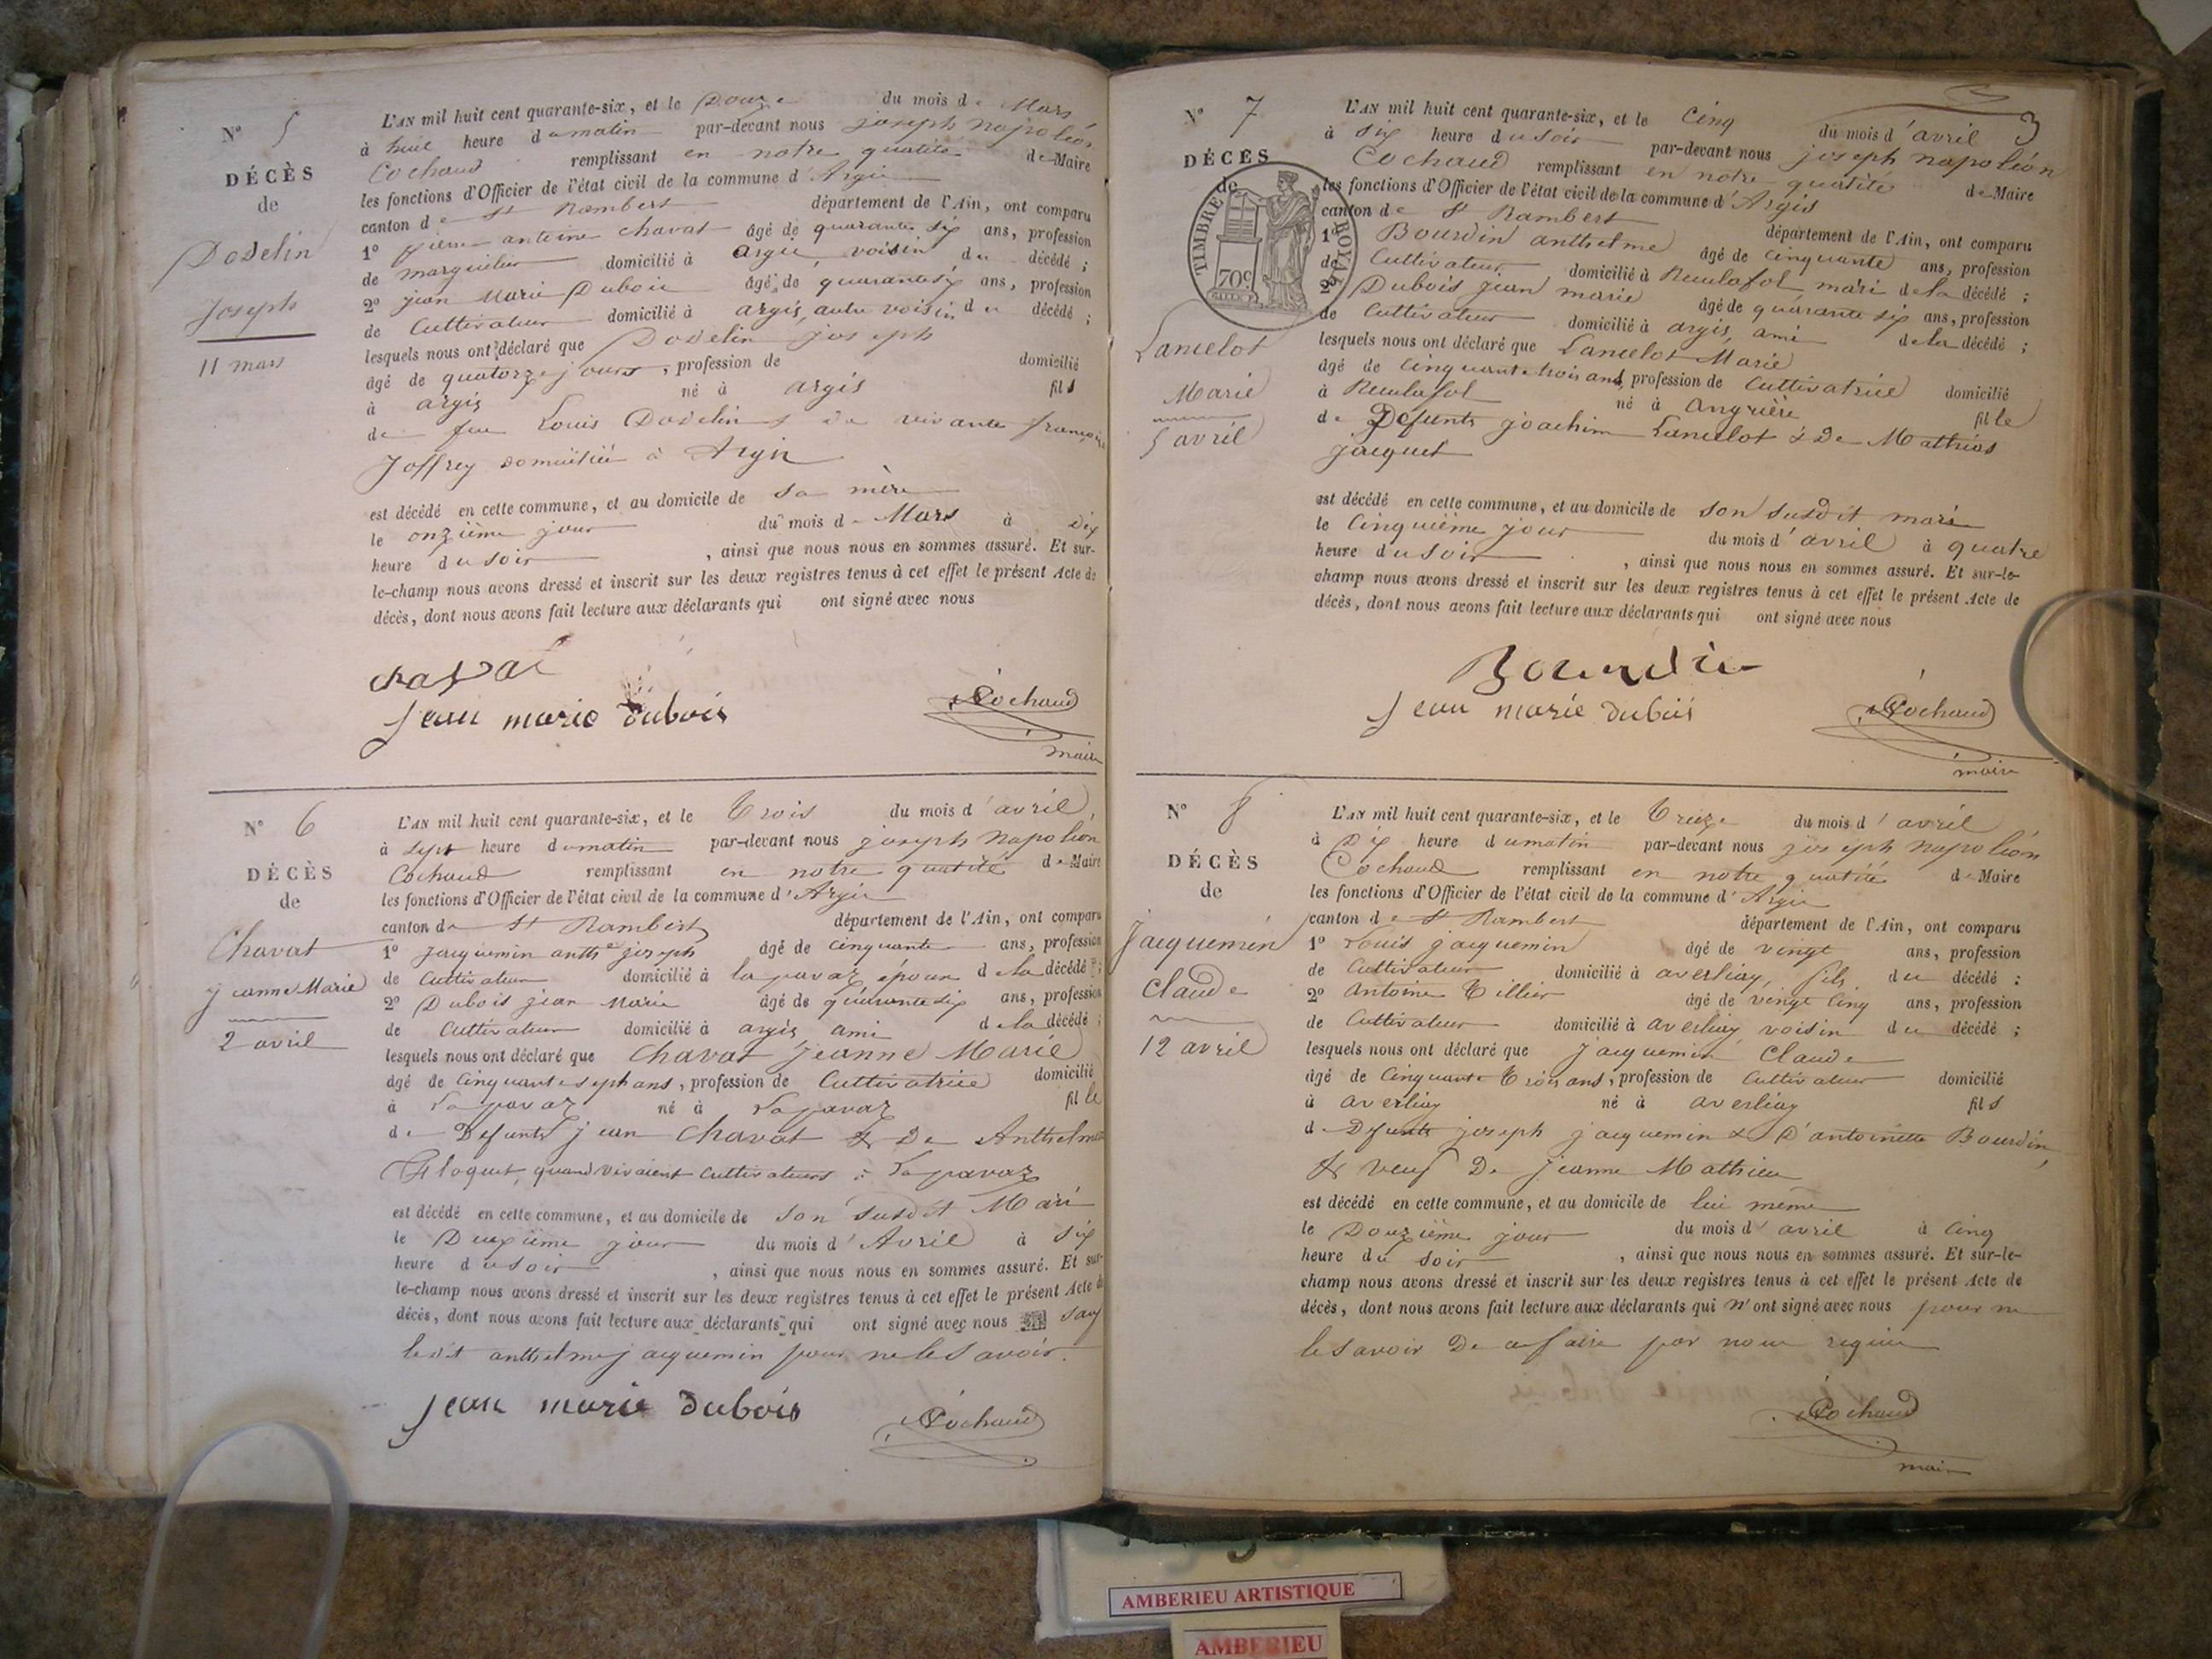 N° 5
DÉCÈS
de
Dodelin
Joseph
11 mars
L'AN mil huit cent quarante-six, et le Douze du mois de Mars
à huit heure du matin par-devant nous joseph napoléon
Cochaud remplissant en notre qualité de Maire
les fonctions d'Officier de l'état civil de la commune d'Argis
canton de St Rambert département de l'Ain, ont comparu
1° pierre antoine chavat âgé de quarante six ans, profession
de marguilier domicilié à argis, voisin du décédé ;
2° jean Marie Dubois âgé de quarante six ans, profession
de Cultivateur domicilié à argis, autre voisin du décédé ;
lesquels nous ont déclaré que Dodelin joseph
âgé de quatorze jours, profession de domicilié
à argis né à argis fils
de feu Louis Dodelin & de vivante françoise
Joffrey domiciliée à Argis
est décédé en cette commune, et au domicile de sa mère
le onzième jour du mois de Mars à dix
heure du soir , ainsi que nous nous en sommes assuré. Et sur-
le-champ nous avons dressé et inscrit sur les deux registres tenus à cet effet le présent Acte de
décès, dont nous avons fait lecture aux déclarants qui ont signé avec nous
chavat
jean marie dubois
Cochaud
maire
N° 6
DÉCÈS
de
Chavat
jeanne Marie
2 avril
L'AN mil huit cent quarante-six, et le Trois du mois d'avril,
à sept heure du matin par-devant nous joseph Napoléon
Cochaud remplissant en notre qualité de Maire
les fonctions d'Officier de l'état civil de la commune d'Argis
canton de St Rambert département de l'Ain, ont comparu
1° jacquemin anthe joseph âgé de cinquante ans, profession
de Cultivateur domicilié à la pavaz, époux de la décédé ;
2° Dubois jean Marie âgé de quarante six ans, profession
de Cultivateur domicilié à argis, ami de la décédé ;
lesquels nous ont déclaré que Chavat jeanne Marie
âgé de Cinquante sept ans, profession de Cultivatrice domicilié
à La pavaz né à La pavaz fille
de Defunts jean Chavat & De Anthelmette
Floquet, quand vivaient Cultivateurs à La pavaz
est décédé en cette commune, et au domicile de son susdit Mari
le Deuxième jour du mois d'Avril à six
heure du soir , ainsi que nous nous en sommes assuré. Et sur-
le-champ nous avons dressé et inscrit sur les deux registres tenus à cet effet le présent Acte de
décès, dont nous avons fait lecture aux déclarants qui ont signé avec nous sauf
ledit anthelme jacquemin pour ne le savoir.
jean marie dubois
Cochaud
3
N° 7
DÉCÈS
de
TIMBRE ROYAL
70c
Lancelot
Marie
5 avril
L'AN mil huit cent quarante-six, et le Cinq du mois d'avril
à six heure du soir par-devant nous joseph napoléon
Cochaud remplissant en notre qualité de Maire
les fonctions d'Officier de l'état civil de la commune d'Argis
canton de St Rambert département de l'Ain, ont comparu
1° Bourdin anthelme âgé de cinquante ans, profession
de Cultivateur domicilié à Reculafol mari de la décédé ;
2° Dubois jean marie âgé de quarante six ans, profession
de Cultivateur domicilié à argis, ami de la décédé ;
lesquels nous ont déclaré que Lancelot Marie
âgé de cinquante trois ans, profession de Cultivatrice domicilié
à Reculafol né à Angrière fille
de Defunts joachim Lancelot & De Mathias
jacquet
est décédé en cette commune, et au domicile de son susdit mari
le Cinquième jour du mois d'avril à quatre
heure du soir , ainsi que nous nous en sommes assuré. Et sur-le-
champ nous avons dressé et inscrit sur les deux registres tenus à cet effet le présent Acte de
décès, dont nous avons fait lecture aux déclarants qui ont signé avec nous
Bourdin
jean marie dubois
Cochaud
maire
N° 8
DÉCÈS
de
jacquemin
Claude
12 avril
L'AN mil huit cent quarante-six, et le Treize du mois d'avril
à Dix heure du matin par-devant nous joseph napoléon
Cochaud remplissant en notre qualité de Maire
les fonctions d'Officier de l'état civil de la commune d'Argis
canton de St Rambert département de l'Ain, ont comparu
1° Louis jacquemin âgé de vingt ans, profession
de Cultivateur domicilié à averliaz, fils du décédé ;
2° antoine Tillier âgé de vingt cinq ans, profession
de Cultivateur domicilié à averliaz, voisin du décédé ;
lesquels nous ont déclaré que jacquemin Claude
âgé de Cinquante Trois ans, profession de Cultivateur domicilié
à averliaz né à averliaz fils
de Defunts joseph jacquemin & D'antoinette Bourdin,
& veuf De jeanne Mathieu
est décédé en cette commune, et au domicile de lui même
le Douzième jour du mois d'avril à cinq
heure du soir , ainsi que nous nous en sommes assuré. Et sur-le-
champ nous avons dressé et inscrit sur les deux registres tenus à cet effet le présent Acte de
décès, dont nous avons fait lecture aux déclarants qui n'ont signé avec nous pour ne
le savoir De ce faire par nous requis
Cochaud
maire
AMBERIEU ARTISTIQUE
AMBERIEU